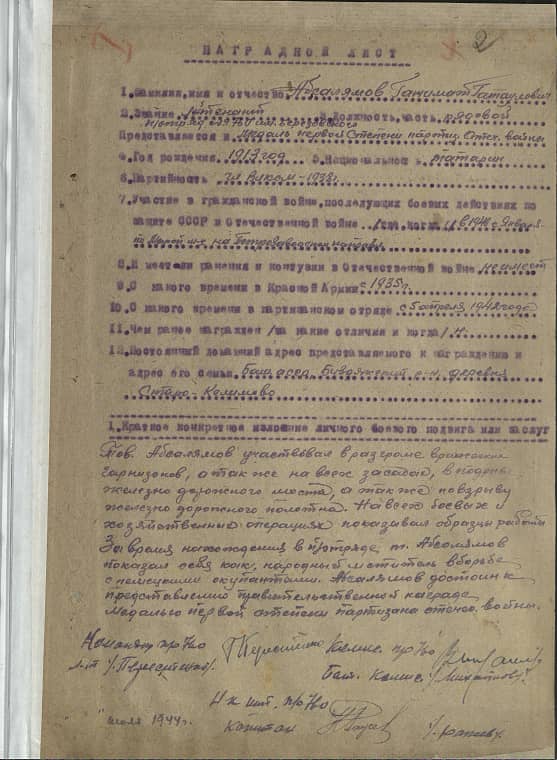 2
НАГРАДНОЙ ЛИСТ
1. Фамилия, имя и отчество Абсалямов
2. Звание Лейтенант 3. Должность, часть рядовой
Представляется к медаль первой степени партиз. Отеч. войны
4. Год рождения 1913 год 5. Национальность татарин
6. Партийность 1938г.
7. Участие в гражданской войне, последующих боевых действиях по
защите СССР и Отечественной войне /где, когда/ в 1941 г.
8. Имеет ли ранения и контузии в Отечественной войне не имеет
9. С какого времени в Красной Армии с 1935г.
10. С какого времени в партизанском отряде с 5 апреля 1942 года
11. Чем ранее награжден /за какие отличия и когда/ Н.
12. Постоянный домашний адрес представляемого к награждению и
адрес его семьи р-н. деревня
Старо-
1. Краткое конкретное изложение личного боевого подвига или заслуг
Тов. Абсалямов участвовал в разгроме вражеских
гарнизонов, а так же на всех засадах, в подрыве
железно дорожного моста, а так же по взрыву
железно дорожного полотна. На всех боевых и
хозяйственных операциях показывал образцы работы
За время нахождения в п/отряде, т. Абсалямов
показал себя как, народный мститель в борьбе
с немецкими окупантами. Абсалямов достоин к
представлению правительственной награде
Медалью первой степени партизана отеч. войны.
Командир п/о
л-т
Бат. Комис.
Нач шт. п/о
июля 1944г. капитан